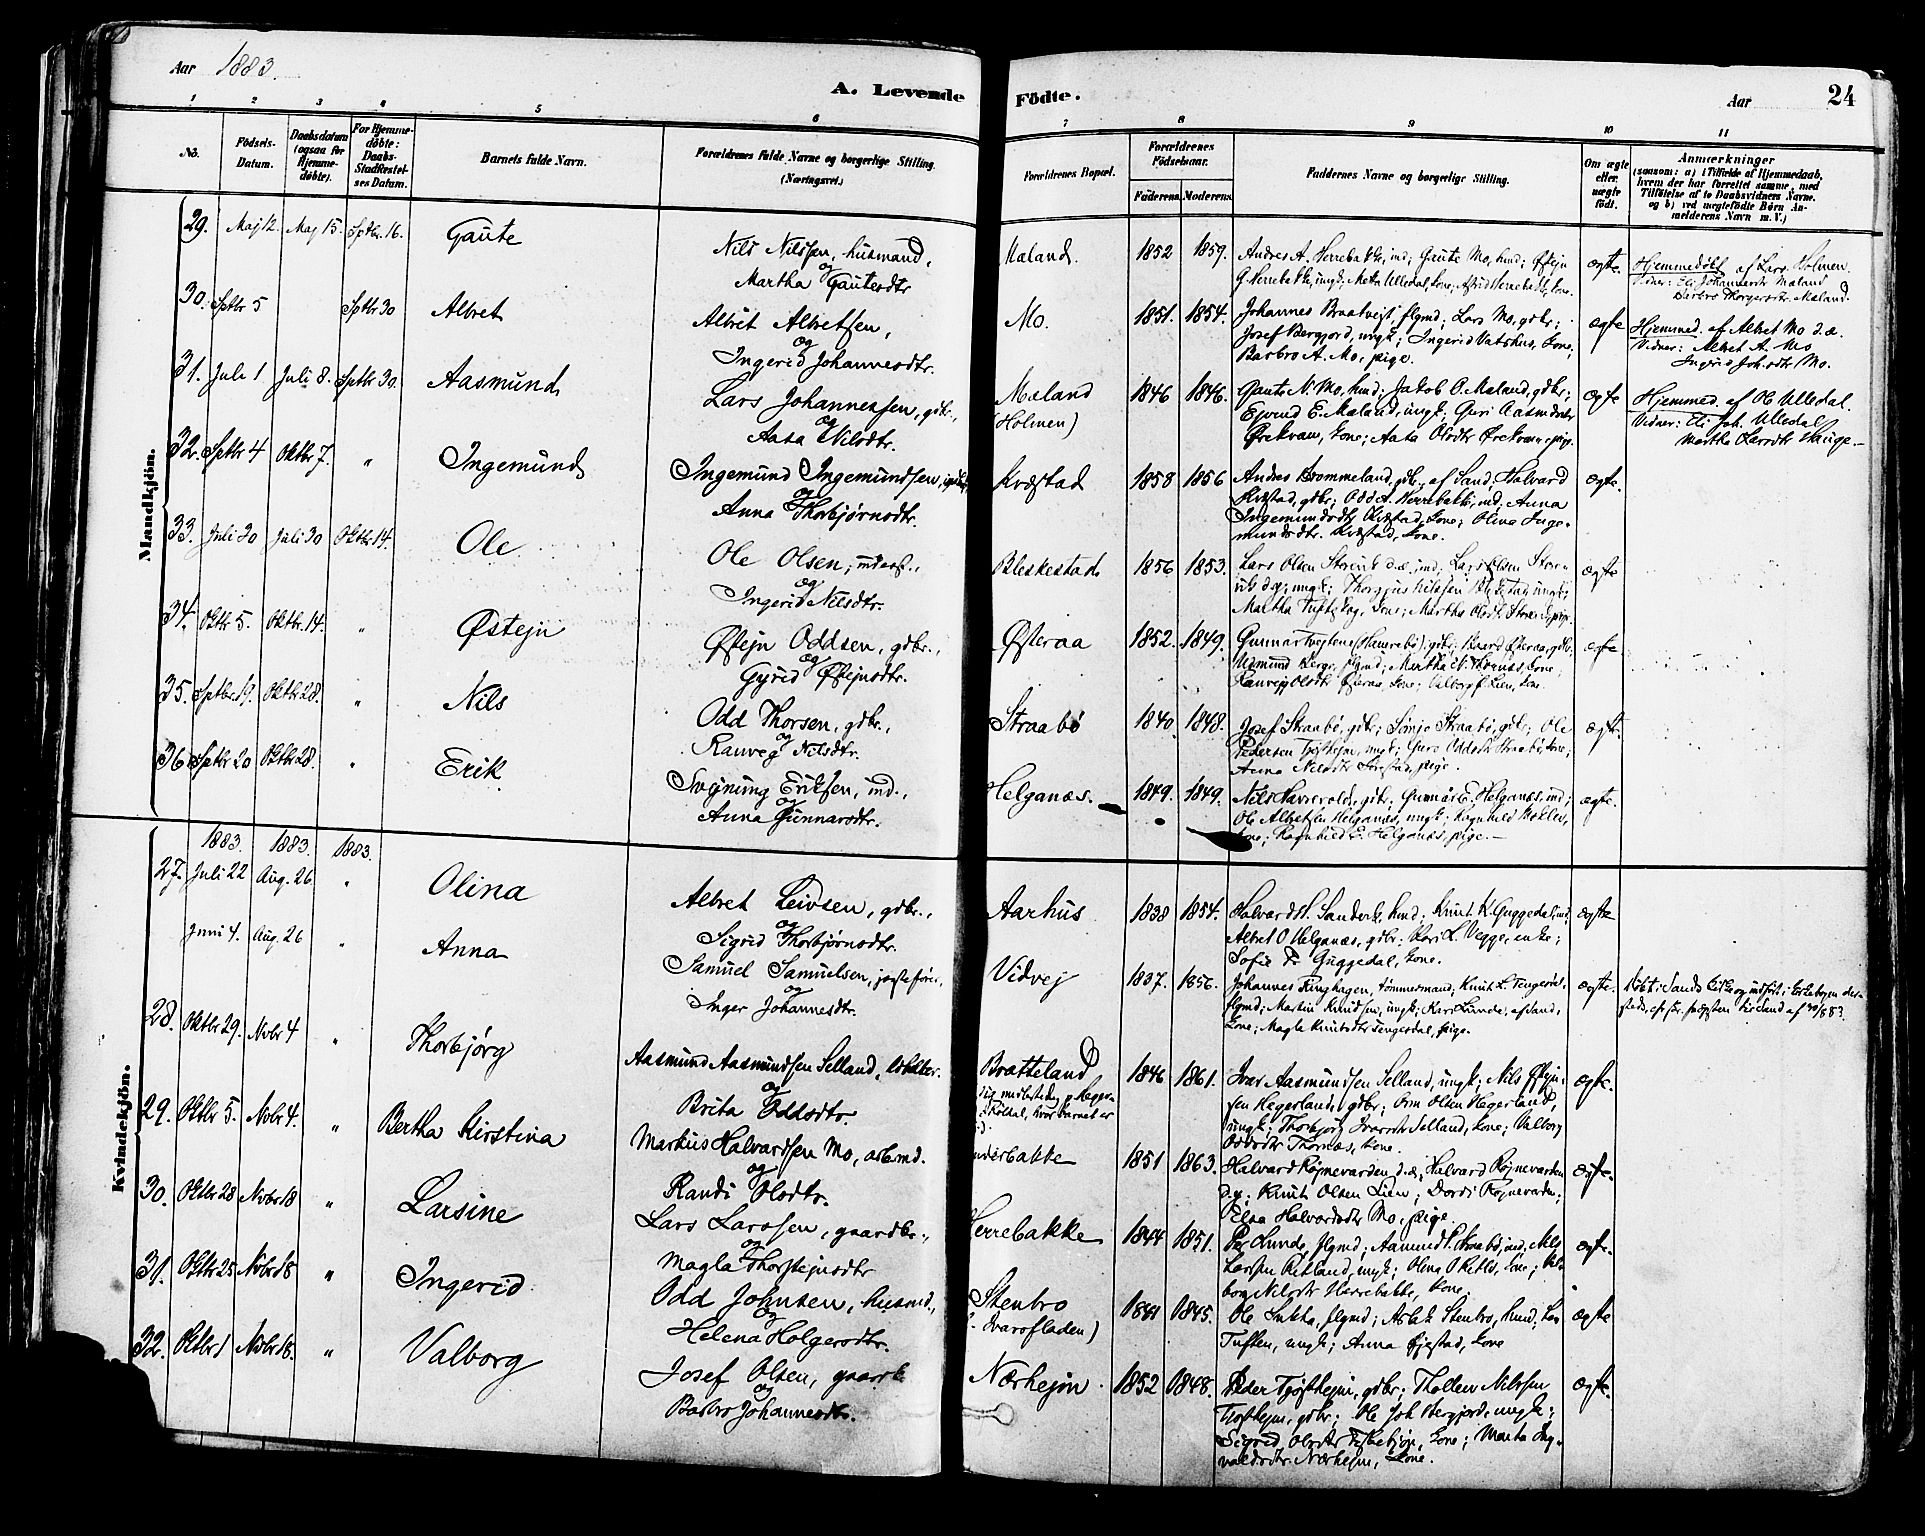 Aar 1883.
A. Levende Födte.
Aar
24
1 2 3 4 5 6 7 8 9 10 11
No.
Födsels-Datum.
Daabsdatum (ogsaa for Hjemme-döbte).
For Hjemme-döbte: Daabs-Stadfæstel-ses Datum.
Barnets fulde Navn.
Forældrenes fulde Navne og borgerlige Stilling. (Næringsvei.)
Forældrenes Bopæl.
Forældrenes Födselsaar.
Faderens. Moderens.
Faddernes Navne og borgerlige Stilling.
Om ægte eller uægte födt.
Anmærkninger
(saasom: a) i Tilfælde af Hjemmedaab,
hvem der har forrettet samme, med
Tilföielse af to Daabsvidners Navne.
og b) ved uægtefödte Börn An-
melderens Navn m. V.)
Mandkjön.
29. Maj 12. Maj 15. Sptbr. 16. Gaute
Nils Nilssen, husmand,
og
Martha Gautesdtr
Mæland. 1852 1859.
Andres A. Herrebakke, ind; Gaute Mo, husmd; Østejn
G. Herrebakke, ungk; Meta Ulledal, kone; Herrebakke, kone.
ægte.
Hjemmedöbt af Lars Holmen.
Vidner: Eli Johannesdtr Mæland
Barbro Thorgersdtr. Mæland.
30. Sptbr 5 Sptbr 30 Albret
Albret Albretsen,
og
Ingerid Johannesdtr.
Mo. 1851. 1854.
Johannes Braatvejt, flgmd; Lars Mo, gdbr;
Josef Bergjord, ungk; Ingerid Vatshus, kone;
Barbro A. Mo, pige.
ægte
Hjemmed. af Albret Mo d.æ.
Vidner: Albret A. Mo
Ingrid Johsdtr Mo.
31. Juli 1 Juli 8. Sptbr 30. Aasmund
Lars Johannessen, gdbr.,
og
Aasa Nilsdtr.
Mæland
(Holmen)
1846 1846.
Gaute N. Mo, husmd; Jakob O. Mæland, gdbr;
Ejvind E. Mæland, ungk; Guri Aasmdsdtr
Ørekvam, kone; Aasa Olsdtr Ørekvam, pige.
ægte
Hjemmed. af Ole Ulledal.
Vidner: Eli Joh. Ulledal
Martha Larsdtr Hauge.
32. Sptbr 4 Oktbr 7. " Ingemund
Ingemund Ingemundsen,
og
Anna Thorbjørnsdtr.
Kvæstad 1858 1856
Andres Brommeland, gdbr, af Sand, Halvard
Kvæstad, gdbr; Odd A. Herrebakke, ind, Anna
Ingemundsdtr Kvæstad, kone; Oline Inge-
mundsdtr. Kvæstad, kone.
ægte.
33. Juli 20 Juli 30 Oktbr 14. Ole
Ole Olsen, inderst.,
og
Ingerid Nilsdtr.
Bleskestad 1856 1853.
Lars Olsen d.æ., ind; Lars Olsen
d.y; ungk;
Martha kone; Martha Olsdtr pige.
ægte
34. Oktbr 5. Oktbr. 14. " Østejn
Østejn Oddsen, gdbr.,
og
Gyrid Østejnsdtr.
Østeraa 1852. 1849.
Gunnar Tvejtene (Hamrebø), gdbr; Baard Østeraa, gdbr;
Asmund Berge, flgmd; Martha N. Thornæs, kone;
Ranvejg Olsdtr Østeraa, kone; Valborg L. Lien, kone.
ægte
35. Sptbr 19. Oktbr 28. " Nils
Odd Thorsen, gdbr.,
og
Ranveg Nilsdtr.
Straabø 1840. 1848.
Josef Straabø, gdbr; Sønje Straabø, gdbr; Ole
Pedersen Tjøsthejm, ungk; Guro Oddsdtr Straabø, kone;
Anna Nilsdtr pige.
ægte.
36 Sptbr 20 Oktbr 28. " Erik
Svejnung Eriksen, ind.,
og
Anna Gunnarsdtr.
Helganæs. 1849. 1849.
Nils Havrevold, gdbr; Gunnar E. Helganæs, ind;
Ole Albretsen Helganæs, ungk; Ragnhild
kone; Ragnhild E. Helganæs, pige.
ægte.
Kvindekjön.
1883. 1883. 1883.
27. Juli 22 Aug. 26 " Olina
Albret Leivsen, gdbr.,
og
Sigrid Thorbjørnsdtr.
Aarhus 1838 1854.
Halvard H. Sandvik, husmd; Knut K. Guggedal, ind;
Albret O Helganæs, gdbr; Kari L. Vegge, enke;
Sofie Guggedal, kone.
ægte
Juni 4. Aug. 26 " Anna
Samuel Samuelsen, jægtefører,
og
Inger Johannesdtr.
Vidvej 1837. 1856.
Johannes Ringhagen, tømmermand; Knut L. Tengesdal,
flgmd; Martin Knudsen, ungk; Kari Lunde, af Sand,
kone; Magla Knutsdtr Tengesdal, pige.
ægte.
Døbt i Sands kirke og indført i kirkebogen der-
steds, af 30/8 83.
28. Oktbr 29. Novbr 4 " Thorbjørg
Aasmund Aasmundsen Selland,
og
Brita Oddsdtr.
Bratteland
1846 1861.
Ivar Aasmundsen Selland, ungk; Nils Østejn-
sen Hegerland, gdbr; Orm Olsen Hegerland,
ungk; Thorbjørg Ivarsdtr Selland, kone; Valborg
Oddsdtr Thornæs, kone.
ægte.
29. Oktbr 5. Novbr 4. " Bertha Kirstina
Markus Halvardsen Mo, arbmd.
og
Randi Olsdtr.
underbakke 1851 1863.
Halvard Røjnevarden d.æ; Halvard Røjnevarden
d.y; Knut Olsen Lien; Dordi Røjnevarden;
Elsa Halvardsdtr Mo, pige.
ægte.
30. Oktbr 28 Novbr 18 " Larsine
Lars Larssen, gaardbr.,
og
Magla Thorstejnsdtr
Herrebakke 1844 1851.
Per Lunde, flgmd; Aamund P. Straabø, ind, Nils
Larssen Retland, ungk; Olina O Retld, kone; Val-
borg Nilsdtr Herrebakke, kone.
ægte.
31. Oktbr 25 Novbr 18 " Ingerid
Odd Johnsen, husmd.,
og
Helena Holgersdtr.
Stenbro
Ivarsfladen)
1841 1845.
Ole Lukka, flgmd; Aslak Stenbro, husmd; Lars
Tuften, ungk; Anna Øjestad, kone
ægte
32. Oktbr 1 Novbr 18. " Valborg
Josef Olsen, gaardb
og
Barbro Johannesdtr.
Nærhejm 1852 1848.
Peder Tjøsthejm, gdbr; Thollev Nilssen
Tjøsthejm, gdbr; Ole Joh Bergjord, ungk;
Sigrid Olsdtr kone; Marta Ing-
valdsdtr. Nærhejm, kone.
ægte.